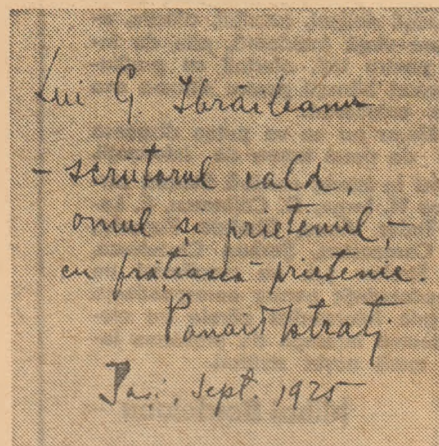 Lui G. Ibrăileanu
- scriitorul cald,
omul și prietenul, -
cu frățească prietenie.
Panait Istrati
Iași, Sept. 1925